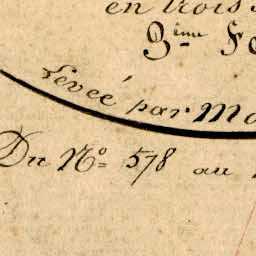 en trois
3ème
Levée par
Du No 578 au